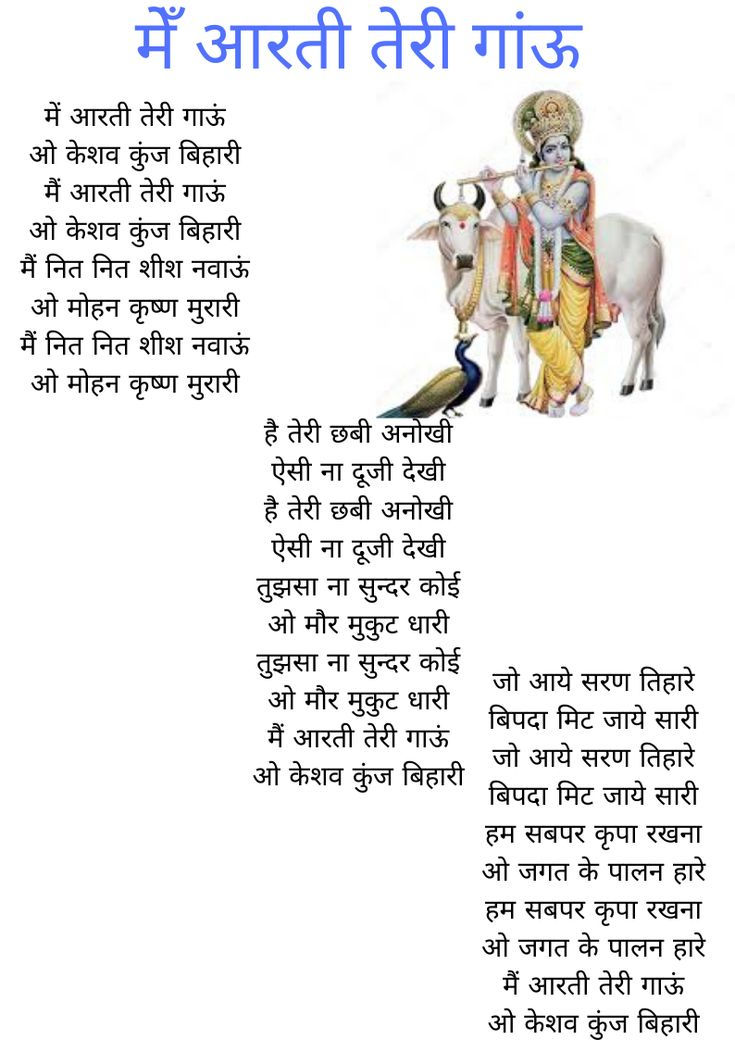 मेँ आरती तेरी गांऊ
में आरती तेरी गाऊं
ओ केशव कुंज बिहारी
मैं आरती तेरी गाऊं
ओ केशव कुंज बिहारी
मैं नित नित शीश नवाऊं
ओ मोहन कृष्ण मुरारी
मैं नित नित शीश नवाऊं
ओ मोहन कृष्ण मुरारी
है तेरी छबी अनोखी
ऐसी ना दूजी देखी
है तेरी छबी अनोखी
ऐसी ना दूजी देखी
तुझसा ना सुन्दर कोई
ओ मौर मुकुट धारी
तुझसा ना सुन्दर कोई
ओ मौर मुकुट धारी
मैं आरती तेरी गाऊं
ओ केशव कुंज बिहारी
जो आये सरण तिहारे
बिपदा मिट जाये सारी
जो आये सरण तिहारे
बिपदा मिट जाये सारी
हम सबपर कृपा रखना
ओ जगत के पालन हारे
हम सबपर कृपा रखना
ओ जगत के पालन हारे
मैं आरती तेरी गाऊं
ओ केशव कुंज बिहारी